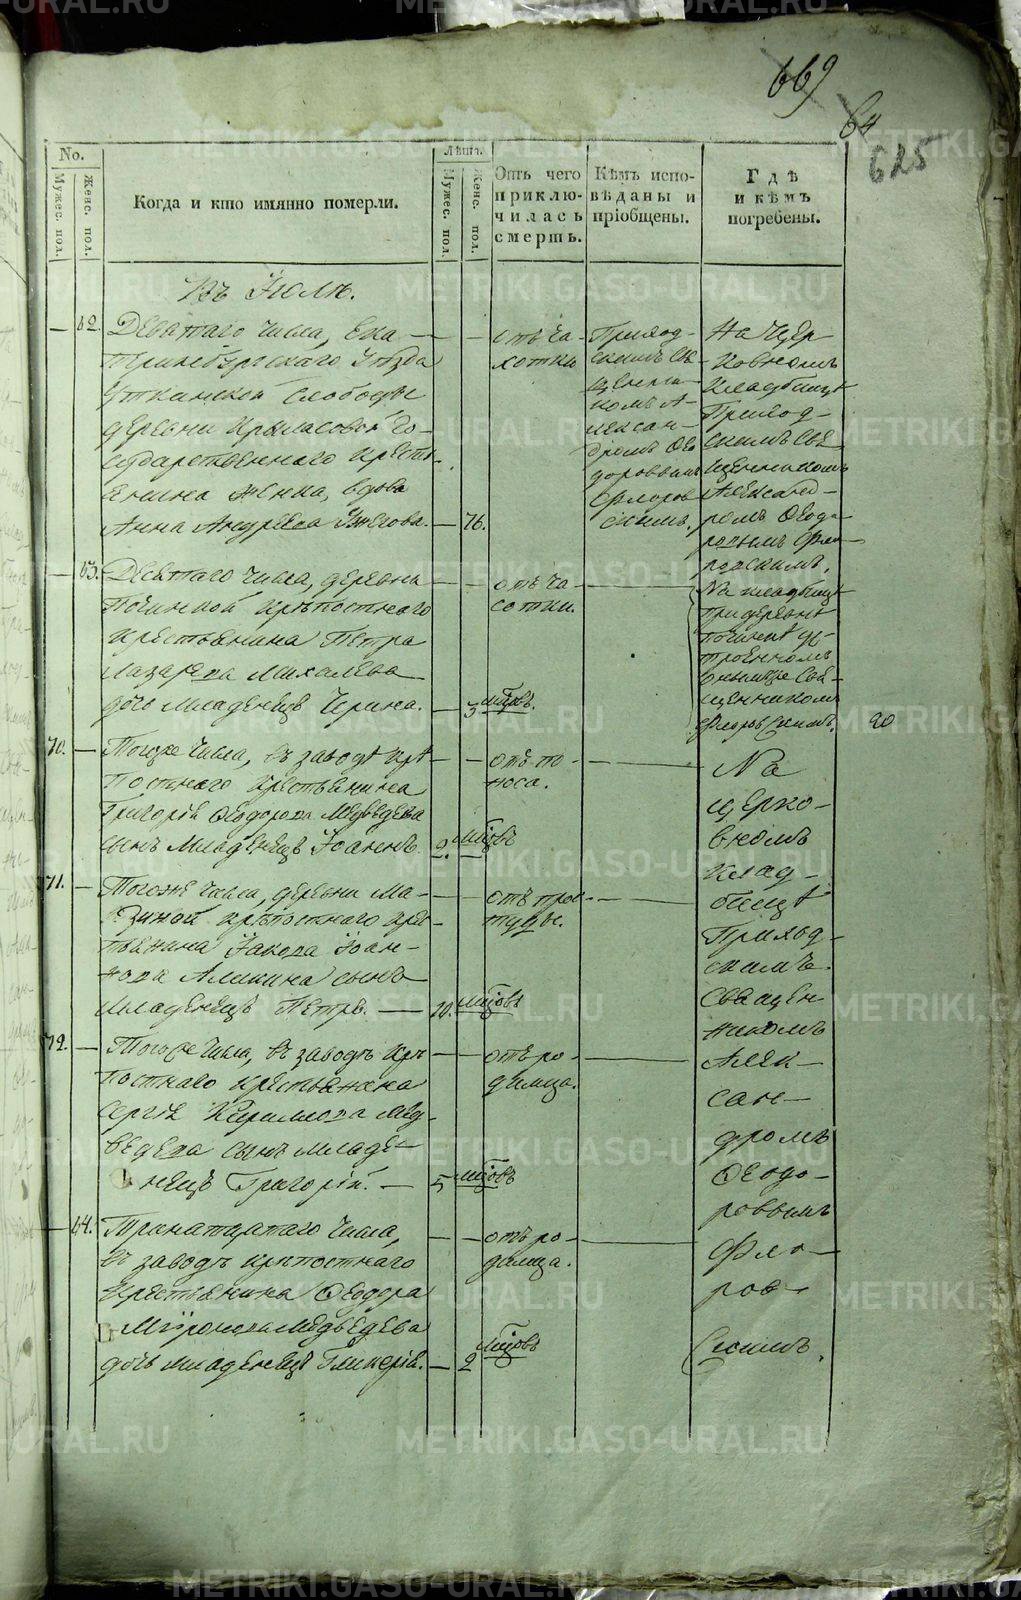 669
64
625
No.
Мужес. пол.
Женс. пол.
Когда и кто имянно померли.
Лѣта.
Мужес. пол.
Женс. пол.
Отъ чего приклю-
чилась
смерть.
Кѣмъ испо-
вѣданы и
пріобщены.
Гдѣ
и кѣмъ
погребены.
Въ Іюлѣ.
62.
Девятаго числа, Ека-
теринбургскаго Уѣзда
Уткинской Слободы
деревни Крыласовой Го-
сударственнаго кресть-
янина жена, вдова
Анна Андреева
76.
отъ ча-
хотки
Приход-
скимъ Свя-
щенни-
комъ А-
лексан-
дромъ Ѳео-
доровымъ
Флоров-
скимъ.
На Цер-
ковномъ
Кладбищѣ
Приход-
скимъ Свя
щенникомъ
Александ-
ромъ Ѳеодо-
ровымъ Фло-
ровскимъ.
63.
Девятаго числа, деревни
Починкой крѣпостнаго
крестьянина Петра
Лазарева Михалева
дочь младенецъ Ирина.
3 мцовъ.
отъ ча-
хотки.
На кладбищѣ
при деревнѣ
Починкѣ ус-
троенномъ
Свя-
щенникомъ
Флоровскимъ.
20
70.
Тогоже числа, въ заводѣ крѣ-
постнаго крестьянина
Григорія Ѳеодорова Медведева
сынъ младенецъ Іоаннъ.
2. мцовъ
отъ по-
носа.
На
церко-
вномъ
клад-
бищѣ
Приход-
скимъ
Священ
никомъ
Алек-
сан-
дромъ
Ѳеодо-
ровымъ
Фло-
ров-
скимъ.
71.
Тогоже числа, деревни Ма-
зиной крѣпостнаго крес-
тьянина Іакова Іоан-
нова Аликина сынъ
младенецъ Петръ.
10. мцовъ
отъ прос-
туды.
72.
Тогоже числа, въ заводѣ крѣ-
постнаго крестьянина
Сергія Кирилова Мед-
ведева сынъ младе-
нецъ Григорій.
5 мцовъ
отъ ро-
димца.
64.
Тринатцатаго числа,
въ заводѣ крѣпостнаго
крестьянина Ѳеодора
Миронова Медведева
дочь младенецъ Гликерія.
2 мцовъ
отъ ро-
димца.
METRIKI.GASO-URAL.RU